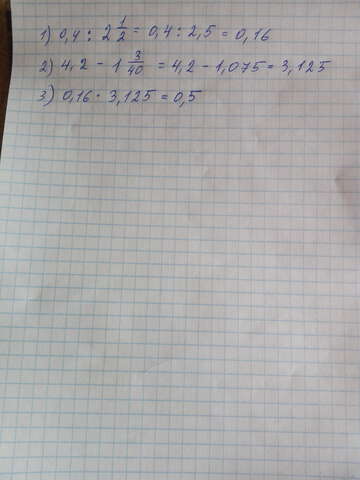 1) 0,4 : 2 1/2 = 0,4 : 2,5 = 0,16
2) 4,2 - 1 3/40 = 4,2 - 1,075 = 3,125
3) 0,16 · 3,125 = 0,5